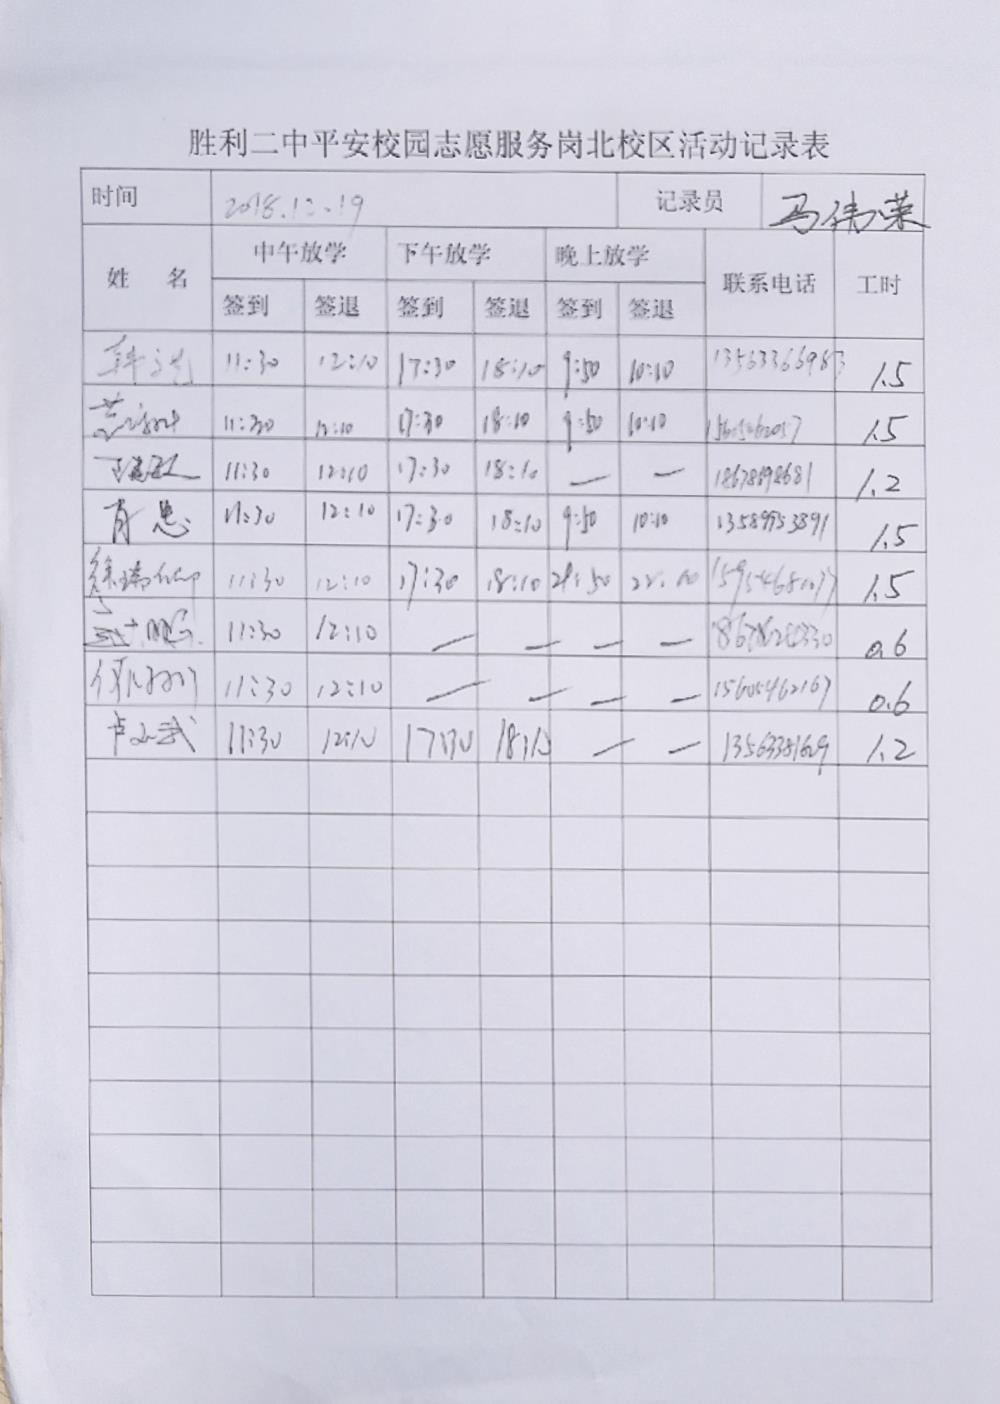 胜利二中平安校园志愿服务岗北校区活动记录表
时间 2018.12.19 记录员 马伟荣
姓 名 中午放学 下午放学 晚上放学 联系电话 工时
签到 签退 签到 签退 签到 签退
11:30 12:10 17:30 18:10 9:50 10:10 13563366983 1.5
11:30 12:10 17:30 18:10 9:50 10:10 1.5
11:30 12:10 17:30 18:10 — — 1.2
肖 11:30 12:10 17:30 18:10 9:50 10:10 13589953891 1.5
徐瑞 11:30 12:10 17:30 18:10 21:50 22:10 1.5
11:30 12:10 — — — — 0.6
11:30 12:10 — — — — 15605462167 0.6
卢 武 11:30 12:10 17:30 18:10 — — 13563381629 1.2